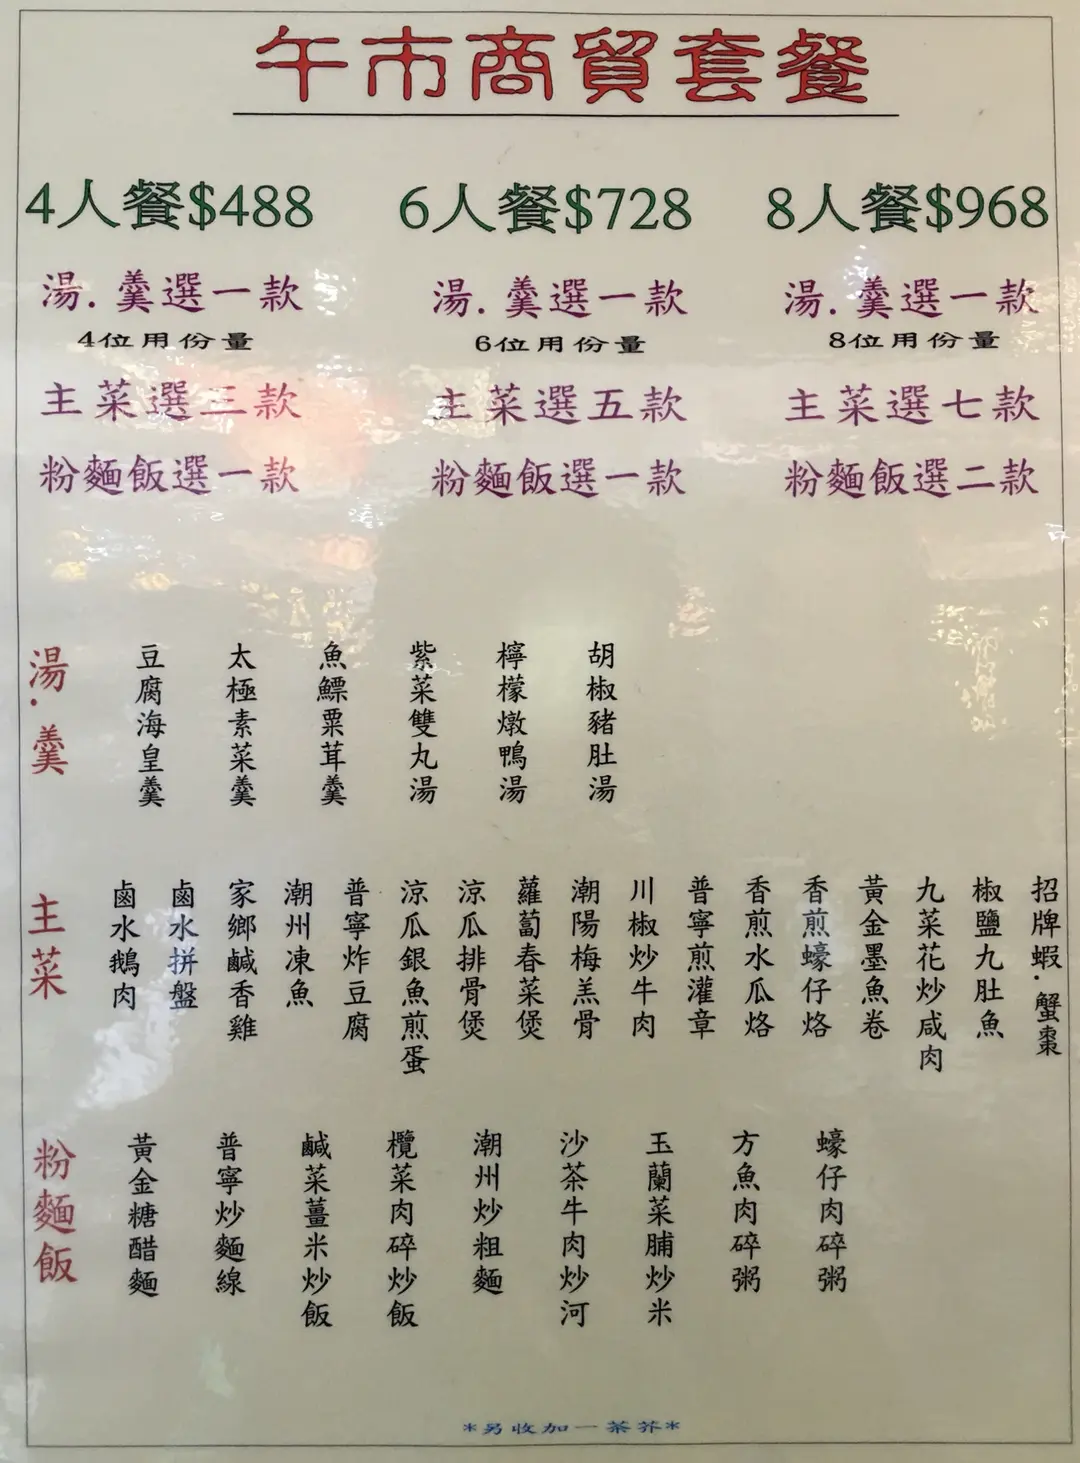 午市商貿套餐
4人餐$488
湯.羹選一款
4位用份量
主菜選三款
粉麵飯選一款
6人餐$728
湯.羹選一款
6位用份量
主菜選五款
粉麵飯選一款
8人餐$968
湯.羹選一款
8位用份量
主菜選七款
粉麵飯選二款
湯.羹
豆腐海皇羹
太極素菜羹
魚鰾粟茸羹
紫菜雙丸湯
檸檬燉鴨湯
胡椒豬肚湯
主菜
鹵水鵝肉
鹵水拼盤
家鄉鹹香雞
潮州凍魚
普寧炸豆腐
涼瓜銀魚煎蛋
涼瓜排骨煲
蘿蔔春菜煲
潮陽梅羔骨
川椒炒牛肉
普寧煎灌章
香煎水瓜烙
香煎蠔仔烙
黃金墨魚卷
九菜花炒咸肉
椒鹽九肚魚
招牌蝦.蟹棗
粉麵飯
黃金糖醋麵
普寧炒麵線
鹹菜薑米炒飯
欖菜肉碎炒飯
潮州炒粗麵
沙茶牛肉炒河
玉蘭菜脯炒米
方魚肉碎粥
蠔仔肉碎粥
*另收加一茶芥*